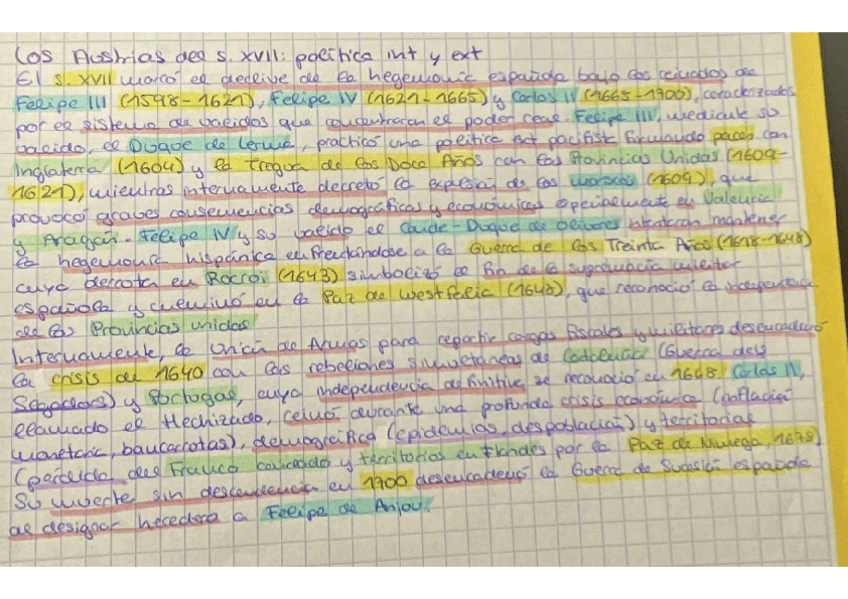 Los Austrias del s. XVII: política int y ext
El s. XVII marcó el declive de la hegemonía española bajo los reinados de
Felipe III (1598-1621), Felipe IV (1621-1665) y Carlos II (1665-1700), caracterizados
por el sistema de validos que concentraron el poder real. Felipe III, mediante su
valido, el Duque de Lerma, practicó una política ext pacifist firmando paces con
Inglaterra (1604) y la Tregua de los Doce Años con las Provincias Unidas (1609-
1621), mientras internamente decretó la expulsión de los moriscos (1609), que
provocó graves consecuencias demográficas y económicas especialmente en Valencia
y Aragón. Felipe IV y su valido el Conde-Duque de Olivares intentaron mantener
la hegemonía hispánica enfrentándose a la Guerra de los Treinta Años (1618-1648)
cuya derrota en Rocroi (1643) simbolizó el fin de la supremacía militar
española y culminó en la Paz de Westfalia (1648), que reconoció la independencia
de las Provincias unidas
Internamente, la Unión de Armas para repartir cargas fiscales y militares desencadenó
la crisis de 1640 con las rebeliones simultáneas de Cataluña (Guerra dels
Segadors) y Portugal, cuya independencia definitiva se reconoció en 1668. Carlos II,
llamado el Hechizado, reinó durante una profunda crisis económica (inflación
monetaria, bancarrotas), demográfica (epidemias, despoblación) y territorial
(pérdida del Franco condado y territorios en Flandes por la Paz de Nimega, 1678)
Su muerte sin descendencia en 1700 desencadenó la Guerra de Sucesión española
al designar heredero a Felipe de Anjou.